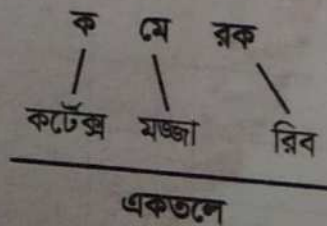 ক মে রক
কর্টেক্স মজ্জা রিব
একতলে